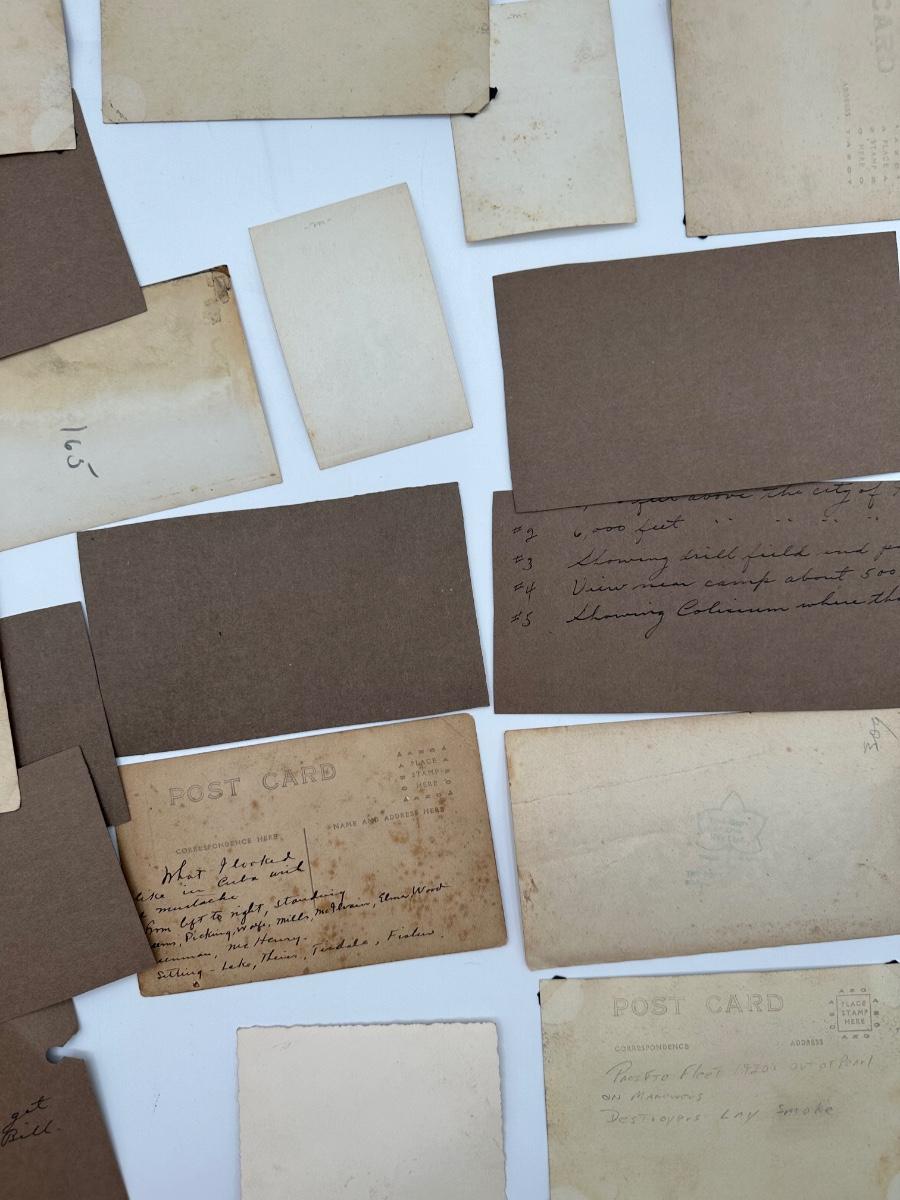 CARD
ADDRESS
PLACE
STAMP
HERE
165
above the city of
#2 6,000 feet " " " "
#3 Showing drill field and
#4 View near camp about 500
#5 Showing Coliseum where the
603
POST CARD
PLACE
STAMP
HERE
CORRESPONDENCE HERE
NAME AND ADDRESS HERE
What I looked
like in Cuba with
mustache
From left to right, standing
Picking, Wolfe, Mills, McIlvain, Elmer, Wood
McHenry.
Sitting - Lake, Theirs, Tisdale, Fisher
get
Bill.
POST CARD
PLACE
STAMP
HERE
CORRESPONDENCE
ADDRESS
Fleet 1920s out of Pearl
on
Destroyers Lay Smoke